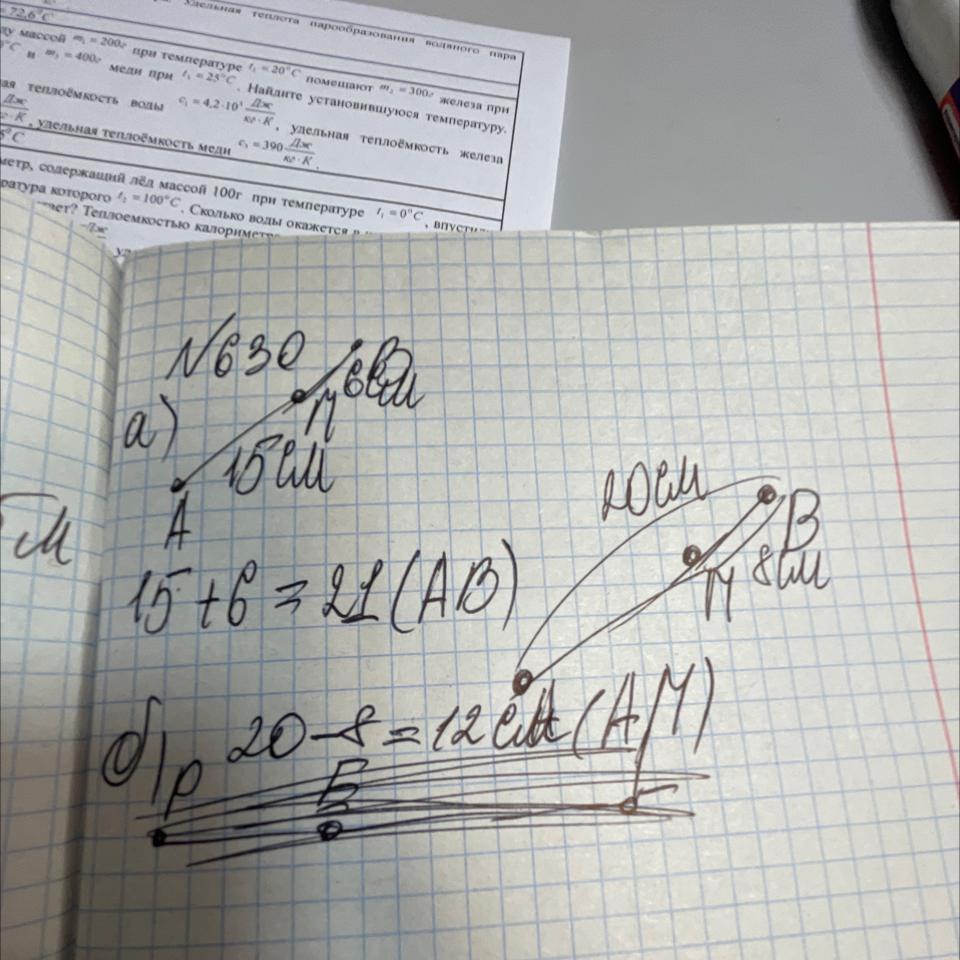 Удельная теплота парообразования водяного пара
=72,6°C
массой m₁=200г при температуре t₁=20°C помещают m₂=300г железа при
и m₃=400г меди при t₃=25°C. Найдите установившуюся температуру.
теплоёмкость воды c₁=4,2·10³ Дж/кг·К, удельная теплоёмкость железа
Дж/кг·К, удельная теплоёмкость меди c₃=390 Дж/кг·К.
содержащий лёд массой 100г при температуре t₁=0°C, впусти
которого t₂=100°C. Сколько воды окажется в
Теплоемкостью калориметра
N630
В
М 6см
а)
15см
А
20см
В
М 8см
м
15+6=21(АВ)
б) 20-8=12см(АМ)
Р